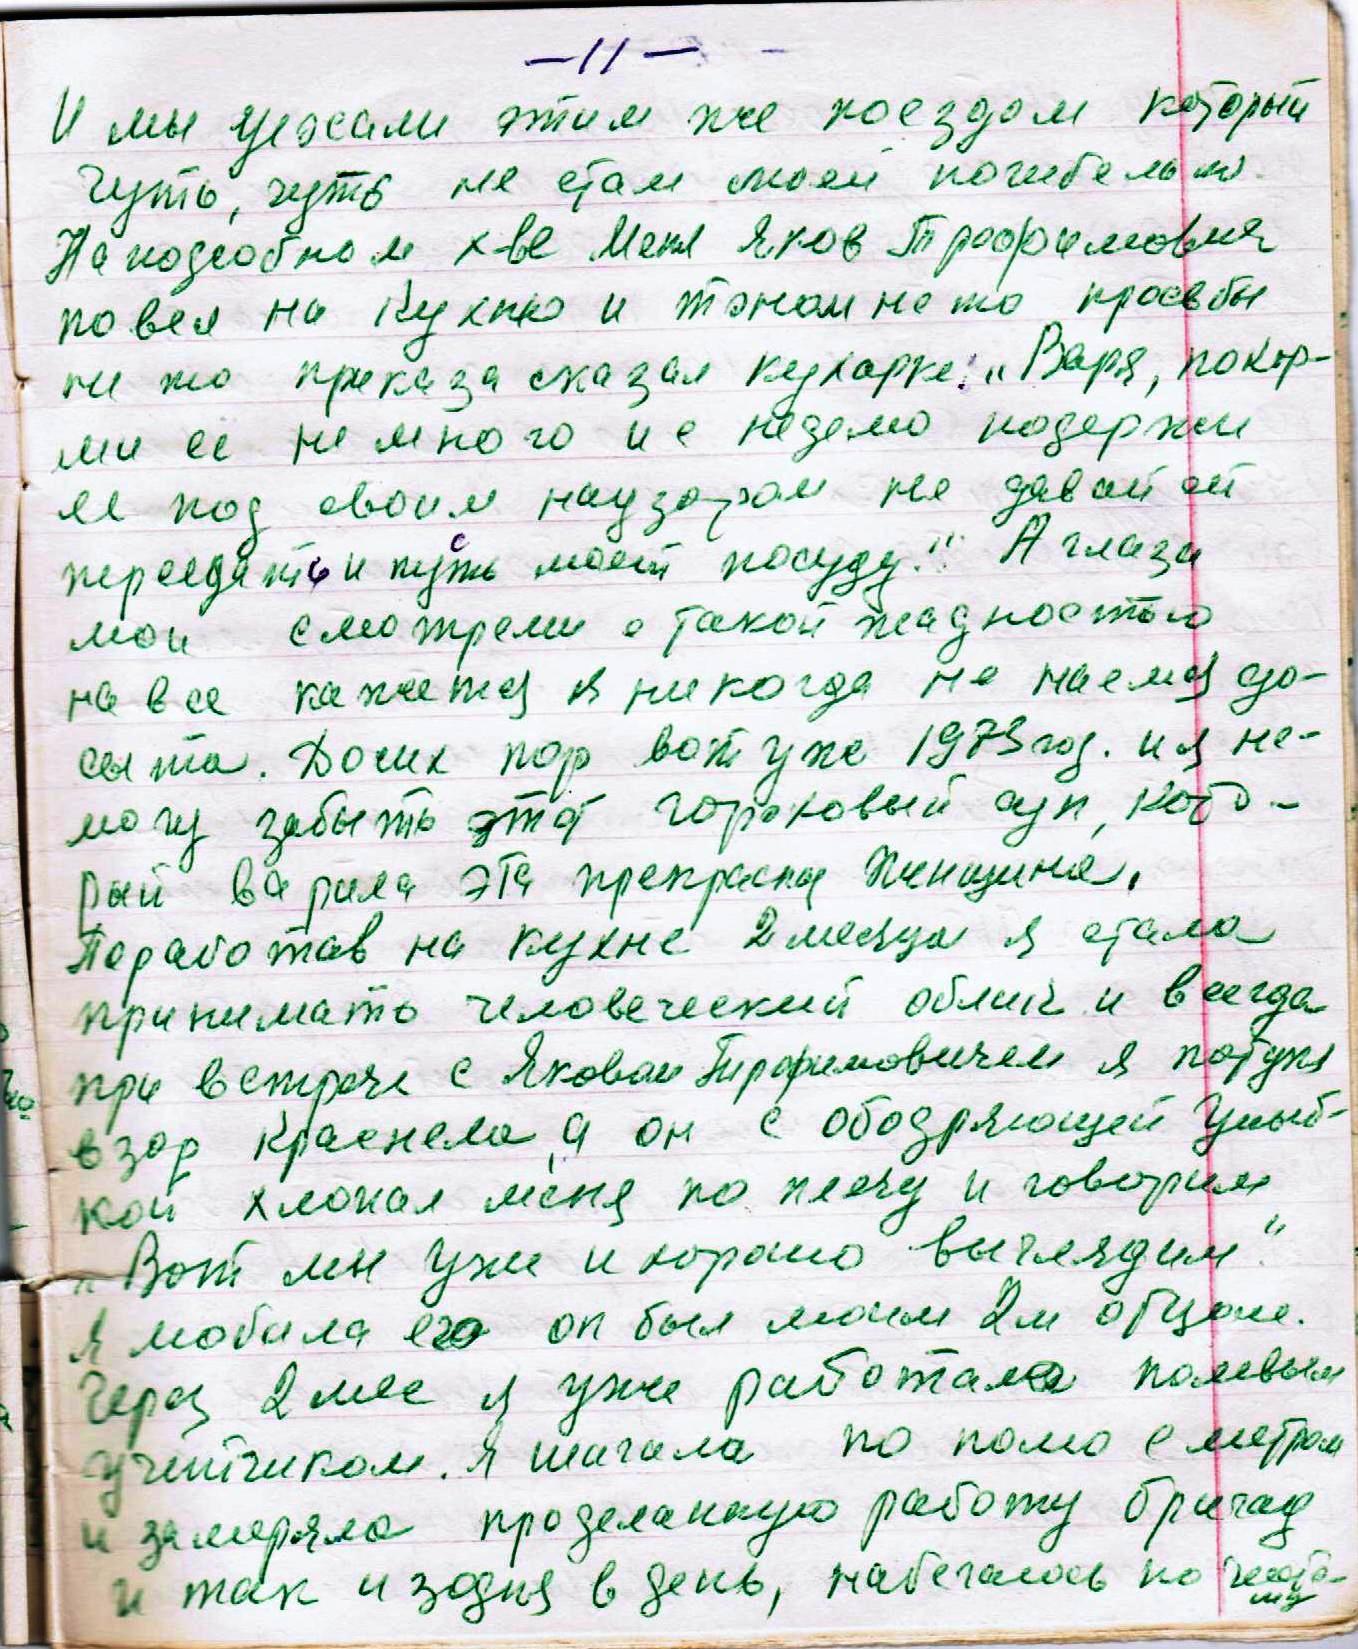 — 11 —
И мы уехали этим же поездом который
чуть, чуть не стал моей погибелью.
На подсобном х-ве меня Яков Трофимович
повел на кухню и тоном не то прозьбы
не то приказа сказал кухарке: „Варя, покор-
ми ее немного и с неделю подержи
ее под своим надзором не давай ей
переедать и пусть моет посуду." А глаза
мои смотрели с такой жадностью
на все кажется я никогда не наемся до-
сыта. Досих пор вот уже 1973 год. и я не-
могу забыть этот гороховый суп, кото-
рый варила эта прекрасная женщина.
Поработав на кухне 2 месяца я стала
принимать человеческий облик и всегда
при встрече с Яковом Трофимовичем я потупя
взор краснела, а он с ободряющей улыб-
кой хлопал меня по плечу и говорил
„Вот мы уже и хорошо выглядим"
Я любила его он был моим 2м отцом.
Через 2 мес я уже работала полевым
учётчиком. Я шагала по полю с метром
и замеряла проделанную работу бригад
и так изодня в день, набегалось по